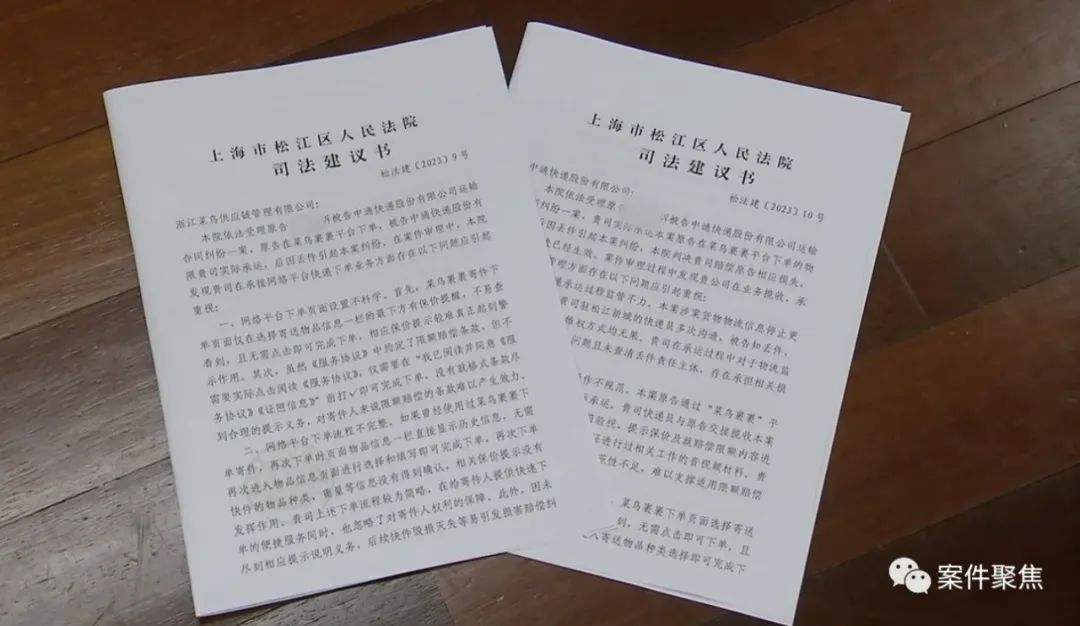 上海市松江区人民法院
司法建议书
松法建〔2023〕9号
浙江菜鸟供应链管理有限公司：
本院依法受理原告 诉被告中通快递股份有限公司运输
合同纠纷一案，原告在菜鸟裹裹平台下单，被告中通快递股份有
限责司实际承运，后因丢件引起本案纠纷，在案件审理中，本院
发现贵司在承接网络平台快递下单业务方面存在以下问题应引起
重视：
一、网络平台下单页面设置不科学。首先，菜鸟裹裹寄件下
单页面仅在选择寄送物品信息一栏的最下方有保价提醒，不易查
看到，且无需点击即可完成下单，相应保价提示较难真正起到警
示作用。其次，虽然《服务协议》中约定了限额赔偿条款，但不
需要实际点击阅读《服务协议》，仅需要在“我已阅读并同意《服
务协议》《证照信息》”前打√即可完成下单，没有就格式条款尽
到合理的提示义务，对寄件人来说限额赔偿的条款难以产生效力。
二、网络平台下单流程不完整。如果曾经使用过菜鸟裹裹下
单寄件，再次下单时页面物品信息一栏直接显示历史信息，无需
再次进入物品信息页面进行选择和填写即可完成下单，再次下单
快件的物品种类、重量等信息没有得到确认，相关保价提示没有
发挥作用。贵司上述下单流程较为简略，在给寄件人提供快速下
单的便捷服务同时，也忽略了对寄件人权利的保障。此外，因未
尽到相应提示说明义务，后续快件毁损灭失等易引发损害赔偿纠
上海市松江区人民法院
司法建议书
松法建〔2023〕10号
中通快递股份有限公司：
本院依法受理原告 诉被告中通快递股份有限公司运输
合同纠纷一案，贵司实际承运本案原告在菜鸟裹裹平台下单的物
后因丢件引起本案纠纷，本院判决贵司赔偿原告相应损失，
已经生效。案件审理过程中发现贵公司在业务揽收、承
管理方面存在以下问题应引起重视：
承运过程监管不力。本案涉案货物物流信息停止更
贵司驻松江新城的快递员多次沟通，被告知丢件，
维权方式均无果。贵司在承运过程中对于物流监
问题且未查清丢件责任主体，存在承担相关损
作不规范。本案原告通过“菜鸟裹裹”平
承运，贵司快递员与原告交接揽收本案
验视、提示保价及就赔偿限额内容进
进行过相关工作的音视频材料，贵
范性不足，难以支撑适用限额赔偿
菜鸟裹裹下单页面选择寄送
到，无需点击即可下单，且
入寄送物品种类选择即可完成下
案件聚焦